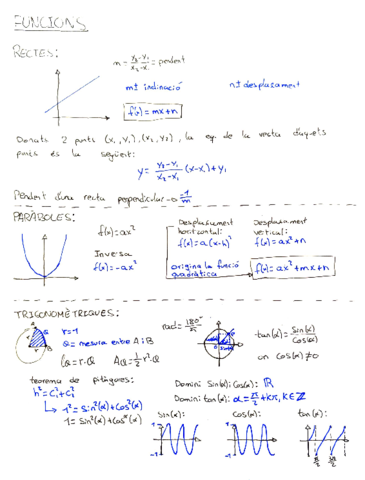 FUNCIONS
RECTES:
m = (y₂-y₁)/(x₂-x₁) = pendent
m = inclinació
n = desplasament
f(x) = mx+n
Donats 2 punts (x₁, y₁), (x₂, y₂), la eq. de la recta d'aquets
punts és la següent:
y = (y₂-y₁)/(x₂-x₁) (x-x₁)+y₁
Pendent d'una recta perpendicular → -1/m
PARÀBOLES:
f(x) = ax²
Inversa
f(x) = -ax²
Desplasament horitzontal:
f(x) = a(x-k)²
Desplasament vertical:
f(x) = ax²+n
origina la funció quadràtica
f(x) = ax²+mx+n
TRIGONOMÈTRIQUES:
r=1
Q = mesura entre A i B
rad = 180°/π
tan(α) = Sin(α)/Cos(α)
on Cos(α)≠0
teorema de pitàgores:
h² = C₁²+C₂²
↳ 1² = Sin²(α)+Cos²(α)
1 = Sin²(α)+Cos²(α)
Domini Sin(α) i Cos(α): ℝ
Domini tan(α): α = π/2 + kπ, k∈ℤ
Sin(α):
Cos(α):
tan(α):
1
-1
1
-1
π/2
3π/2